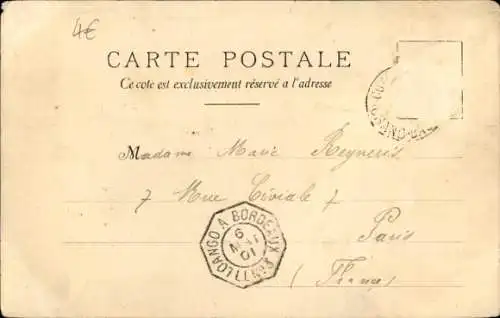 4€
CARTE POSTALE
Ce cote est exclusivement réservé a l'adresse
Madame Marie Reyneris
7 Rue Civiale 7
Paris
(France)
LOANGO A BORDEAUX
6
MAI
01